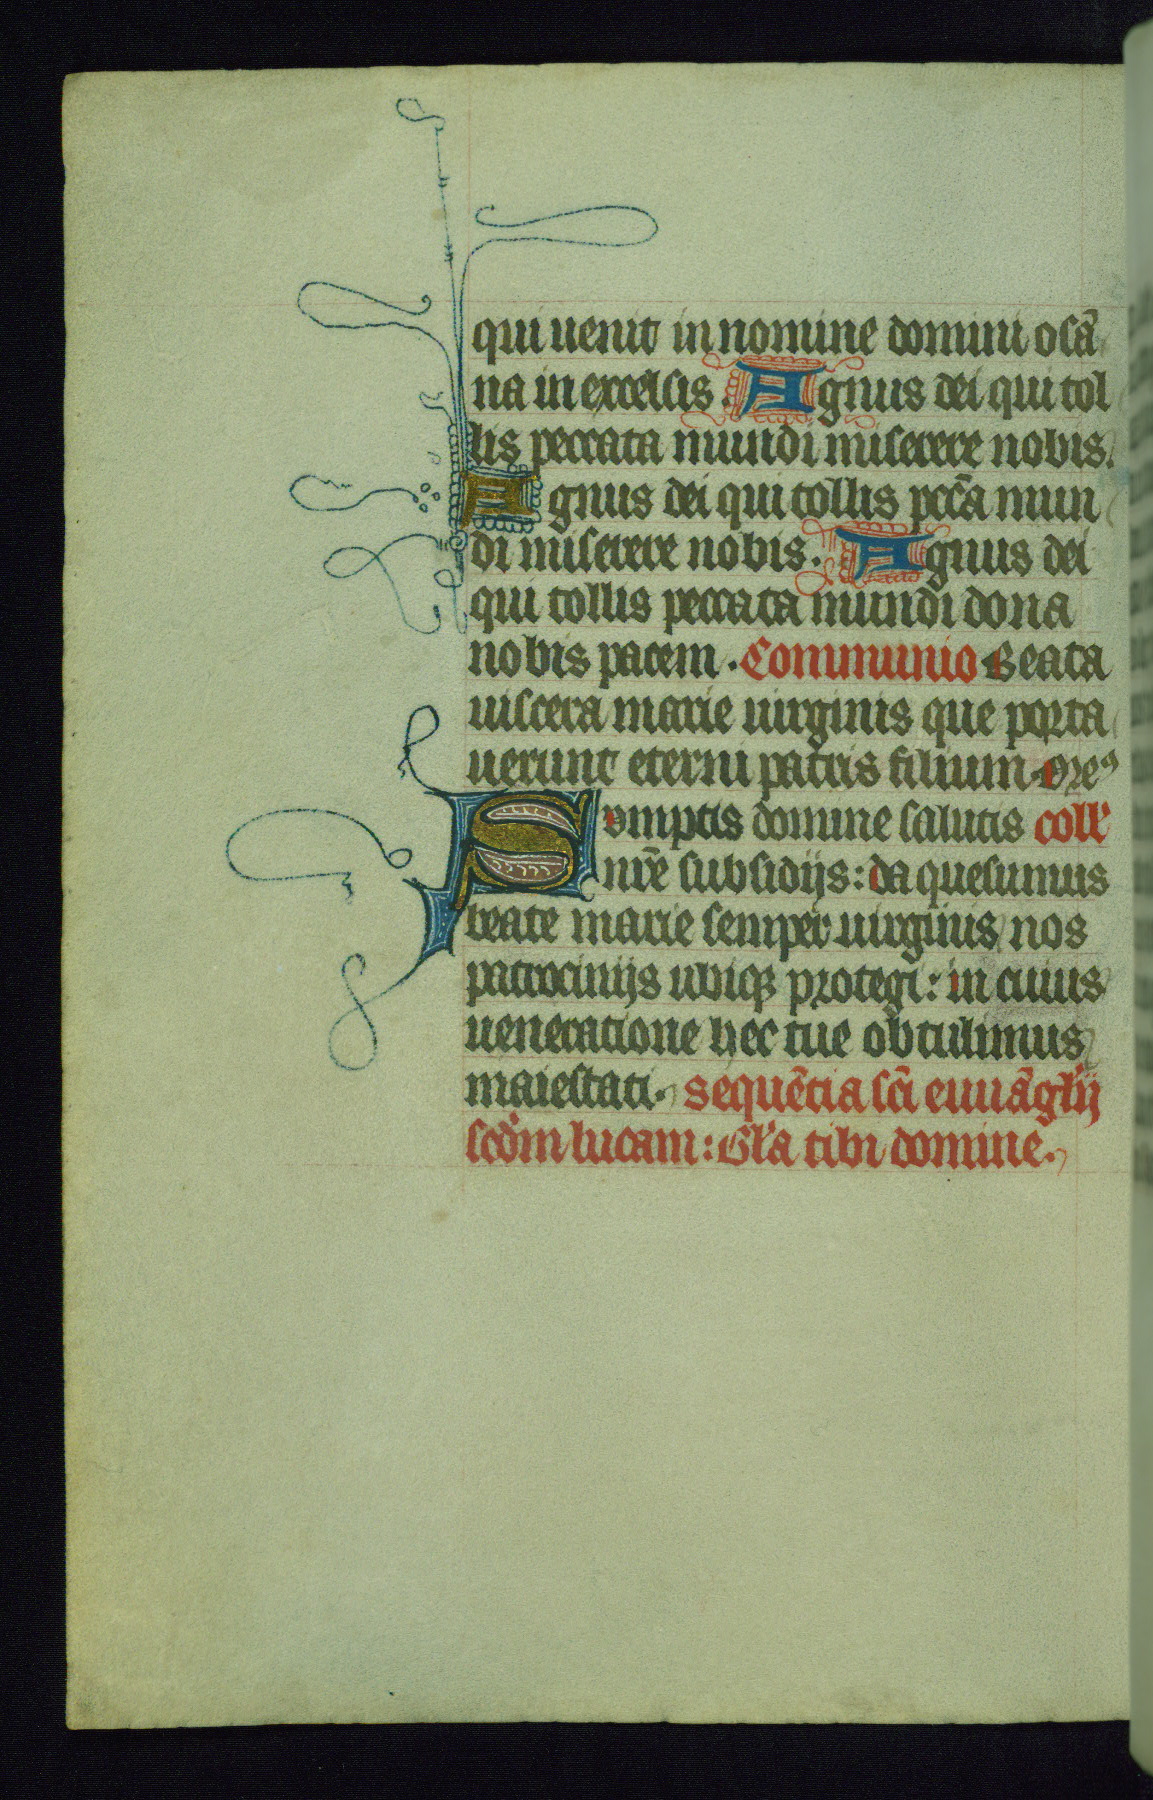 qui uenit in nomine domini osā
na in excelsis. Agnus dei qui tol
lis peccata mundi miserere nobis.
Agnus dei qui tollis pccā mun
di miserere nobis. Agnus dei
qui tollis peccata mundi dona
nobis pacem. Communio Beata
uiscera marie uirginis que porta
uerunt eterni patris filium.
Sumptis domine salutis coll'
nrē subsidijs: da quesumus
beate marie semper uirginis nos
patrocinijs ubiqꝫ protegi: in cuius
ueneratione hec tue obtulimus
maiestati. sequētia scī euuāglij
scdm lucam: Gl'a tibi domine.